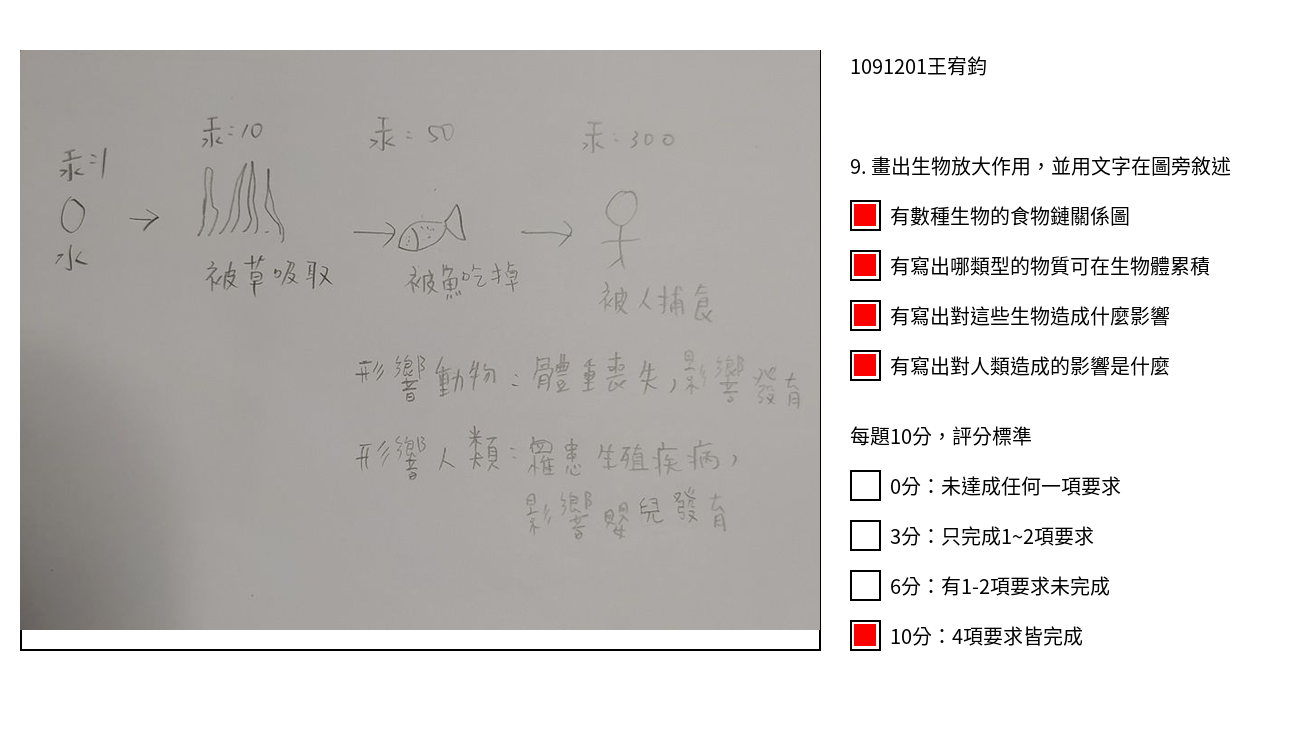 汞:1
水
汞:10
被草吸取
汞:50
被魚吃掉
汞:300
被人捕食
形響動物:體重喪失,影響發育
形響人類:罹患生殖疾病,
影響嬰兒發育
1091201王宥鈞
9. 畫出生物放大作用,並用文字在圖旁敘述
有數種生物的食物鏈關係圖
有寫出哪類型的物質可在生物體累積
有寫出對這些生物造成什麼影響
有寫出對人類造成的影響是什麼
每題10分,評分標準
0分:未達成任何一項要求
3分:只完成1~2項要求
6分:有1-2項要求未完成
10分:4項要求皆完成